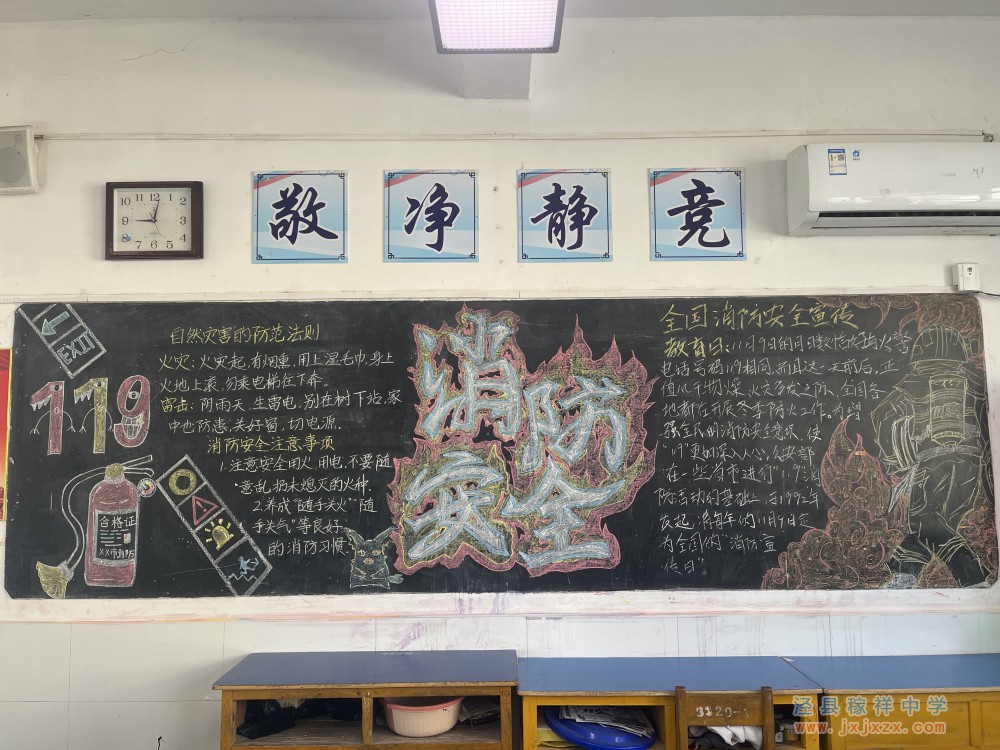 敬 净 静 竞
12 1 2 3 4 5 6 7 8 9 10 11
EXIT
119
自然灾害的防范法则
火灾：火灾起，有烟熏，用上湿毛巾，身上
火地上滚，勿乘电梯往下奔。
雷击：阴雨天，生雷电，别在树下站，家
中也防患，关好窗，切电源。
消防安全注意事项
1.注意安全用火，用电，不要随
意乱扔未熄灭的火种。
2.养成“随手关火”“随
手关气”等良好
的消防习惯。
合格证
消防
安全
全国消防安全宣传
教育日：11月9日的月日数恰好与火警
电话号码119相同，而且这一天前后，正
值风干物燥，火灾多发之际，全国各
地都在开展冬季防火工作。为增
强全民的消防安全意识，使
“119”更加深入人心，公安部
在一些省市进行“119”消
防活动的基础上，于1992年
发起，将每年的11月9日定
为全国的“消防宣
传日”。
3320-1
泾县稼祥中学
www.jxjxzx.com